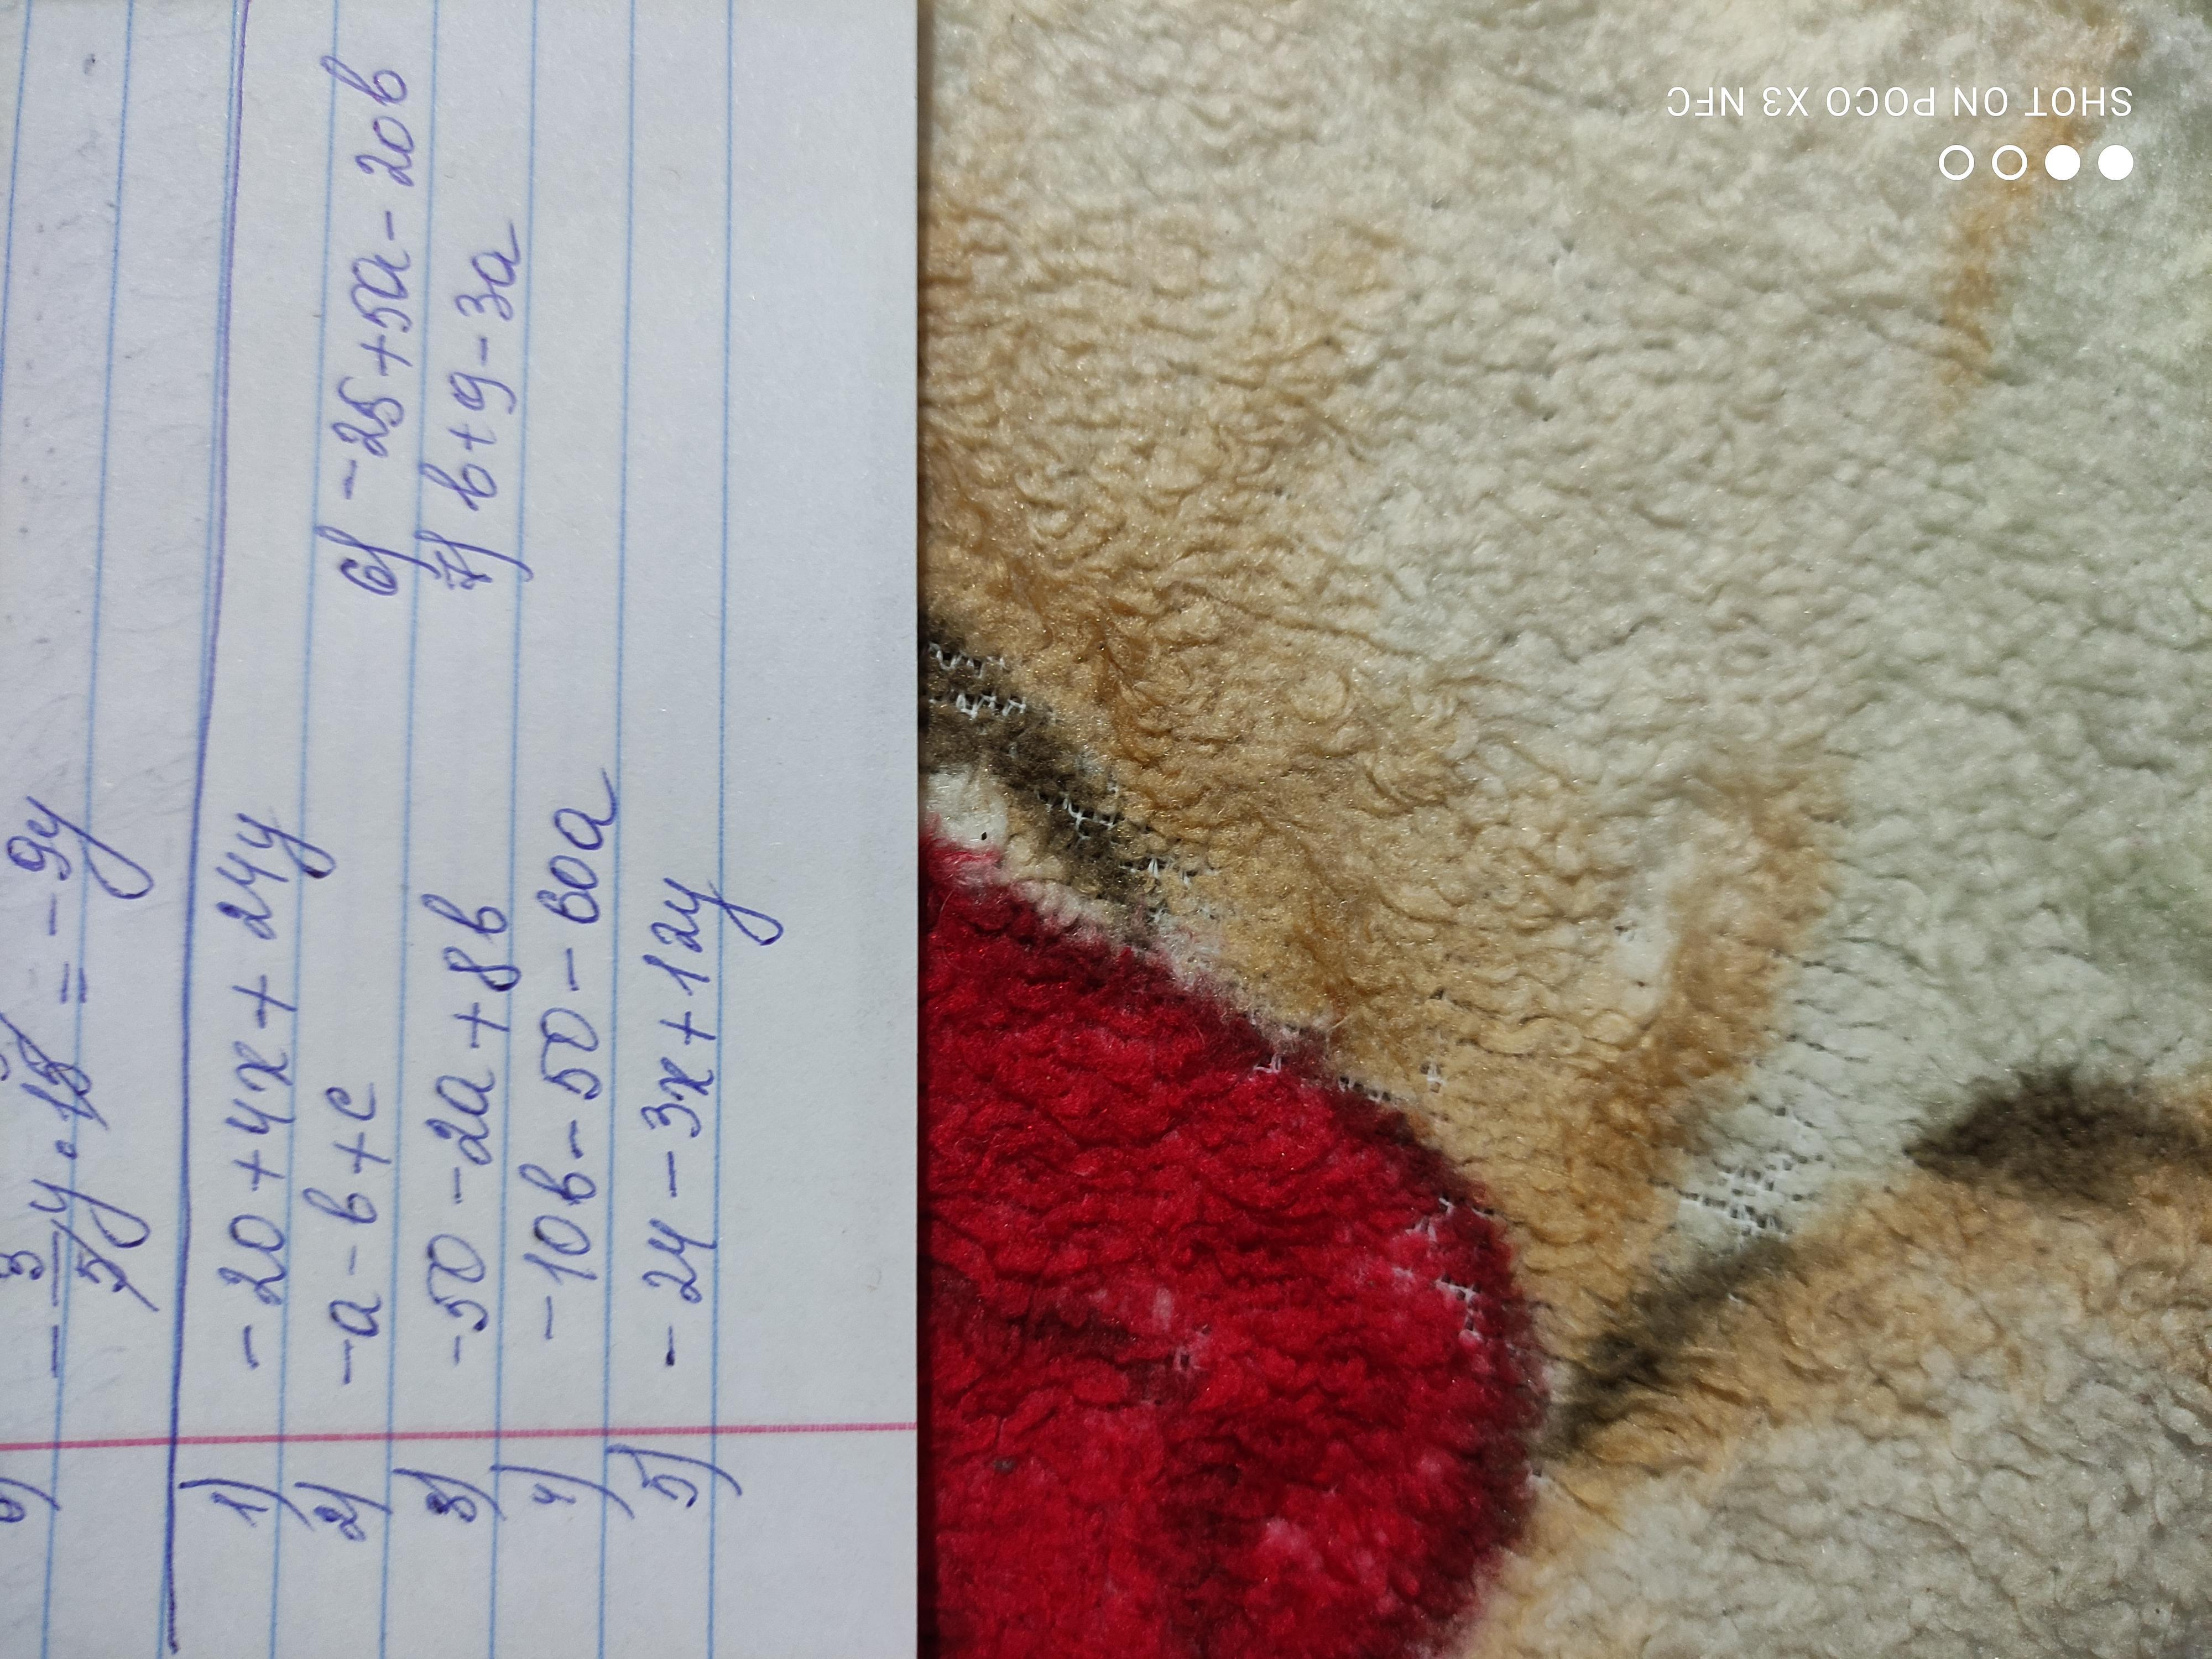 - 3/5 y · 15 = - 9y
1) - 20 + 4x + 24y
2) -a - b + c
3) -50 - 2a + 8b
4) - 10b - 50 - 60a
5) - 24 - 3x + 12y
6) - 25 + 5a - 20b
7) b + 9 - 3a
SHOT ON POCO X3 NFC